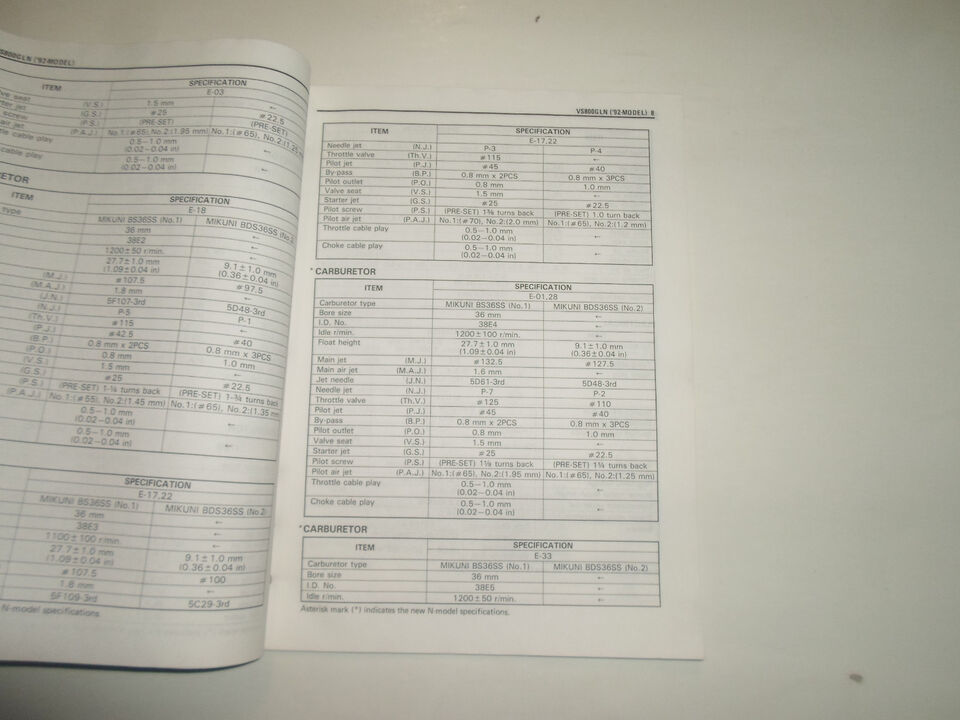 VS800GLN ('92-MODEL)
ITEM SPECIFICATION
E-03
valve seat (V.S.) 1.5 mm ←
starter jet (G.S.) #25 #22.5
screw (P.S.) (PRE-SET) (PRE-SET)
air jet (P.A.J.) No.1:(#65), No.2:(1.95 mm) No.1:(#65), No.2:(1.25 mm)
cable play 0.5–1.0 mm ←
(0.02–0.04 in)
cable play 0.5–1.0 mm ←
(0.02–0.04 in)
ETOR
ITEM SPECIFICATION
E-18
type MIKUNI BS36SS (No.1) MIKUNI BDS36SS (No.2)
36 mm ←
38E2 ←
1200±50 r/min. ←
27.7±1.0 mm 9.1±1.0 mm
(1.09±0.04 in) (0.36±0.04 in)
(M.J.) #107.5 #97.5
(M.A.J.) 1.8 mm ←
(J.N.) 5F107-3rd 5D48-3rd
(N.J.) P-5 P-1
(Th.V.) #115 ←
(P.J.) #42.5 #40
(B.P.) 0.8 mm x 2PCS 0.8 mm x 3PCS
(P.O.) 0.8 mm 1.0 mm
(V.S.) 1.5 mm ←
(G.S.) #25 #22.5
(P.S.) (PRE-SET) 1-¼ turns back (PRE-SET) 1-¾ turns back
(P.A.J.) No.1:(#55), No.2:(1.45 mm) No.1:(#65), No.2:(1.35 mm
0.5–1.0 mm ←
(0.02–0.04 in)
0.5–1.0 mm ←
(0.02–0.04 in)
SPECIFICATION
E-17,22
MIKUNI BS36SS (No.1) MIKUNI BDS36SS (No.2)
36 mm ←
38E3 ←
1100±100 r/min. ←
27.7±1.0 mm 9.1±1.0 mm
(1.09±0.04 in) (0.36±0.04 in)
#107.5 #100
1.6 mm ←
5F109-3rd 5C29-3rd
N-model specifications.
VS800GLN ('92-MODEL) 8
ITEM SPECIFICATION
E-17,22
Needle jet (N.J.) P-3 P-4
Throttle valve (Th.V.) #115 ←
Pilot jet (P.J.) #45 #40
By-pass (B.P.) 0.8 mm x 2PCS 0.8 mm x 3PCS
Pilot outlet (P.O.) 0.8 mm 1.0 mm
Valve seat (V.S.) 1.5 mm ←
Starter jet (G.S.) #25 #22.5
Pilot screw (P.S.) (PRE-SET) 1¾ turns back (PRE-SET) 1.0 turn back
Pilot air jet (P.A.J.) No.1:(#70), No.2:(2.0 mm) No.1:(#65), No.2:(1.2 mm)
Throttle cable play 0.5–1.0 mm ←
(0.02–0.04 in)
Choke cable play 0.5–1.0 mm ←
(0.02–0.04 in)
*CARBURETOR
ITEM SPECIFICATION
E-01,28
Carburetor type MIKUNI BS36SS (No.1) MIKUNI BDS36SS (No.2)
Bore size 36 mm ←
I.D. No. 38E4 ←
Idle r/min. 1200±100 r/min. ←
Float height 27.7±1.0 mm 9.1±1.0 mm
(1.09±0.04 in) (0.36±0.04 in)
Main jet (M.J.) #132.5 #127.5
Main air jet (M.A.J.) 1.6 mm ←
Jet needle (J.N.) 5D61-3rd 5D48-3rd
Needle jet (N.J.) P-7 P-2
Throttle valve (Th.V.) #125 #110
Pilot jet (P.J.) #45 #40
By-pass (B.P.) 0.8 mm x 2PCS 0.8 mm x 3PCS
Pilot outlet (P.O.) 0.8 mm 1.0 mm
Valve seat (V.S.) 1.5 mm ←
Starter jet (G.S.) #25 #22.5
Pilot screw (P.S.) (PRE-SET) turns back (PRE-SET) turns back
Pilot air jet (P.A.J.) No.1:(#65), No.2:(1.95 mm) No.1:(#65), No.2:(1.25 mm)
Throttle cable play 0.5–1.0 mm ←
(0.02–0.04 in)
Choke cable play 0.5–1.0 mm ←
(0.02–0.04 in)
*CARBURETOR
ITEM SPECIFICATION
E-33
Carburetor type MIKUNI BS36SS (No.1) MIKUNI BDS36SS (No.2)
Bore size 36 mm ←
I.D. No. 38E5 ←
Idle r/min. 1200±50 r/min. ←
Asterisk mark (*) indicates the new N-model specifications.